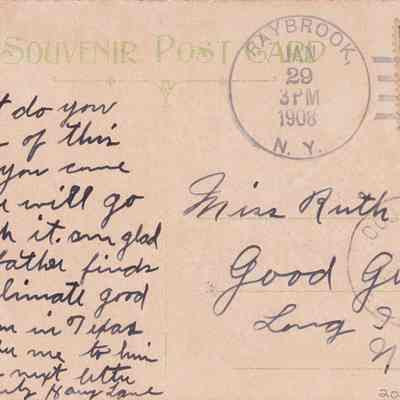 SOUVENIR POST CARD
BAYBROOK,
JAN
29
3 PM
1908
N. Y.
t do you
of this
you come
will go
it. am glad
father finds
climate good
in Texas
me to him
next letter
Miss Ruth
Good G
Long I
N
20